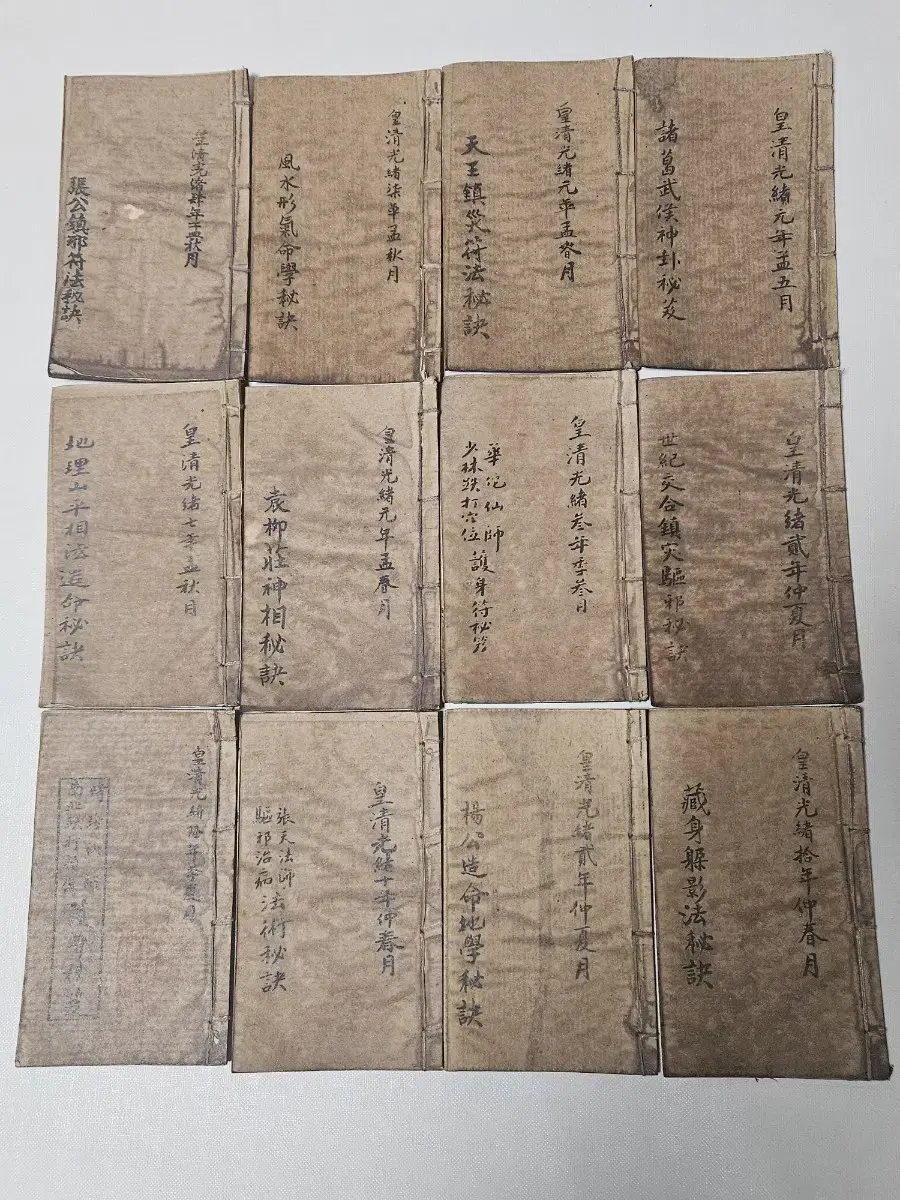 皇清光緒元年孟五月
諸葛武侯神卦秘笈
皇清光緒元年孟春月
天王鎮災符法秘訣
皇清光緒柒年孟秋月
風水形氣命學秘訣
皇清光緒肆年孟秋月
張公鎮邪符法秘訣
皇清光緒貳年仲夏月
世紀交合鎮災驅邪秘訣
皇清光緒叁年季叁月
華佗仙師
少林跌打穴位
護身符秘笈
皇清光緒元年孟春月
袁柳莊神相秘訣
皇清光緒七年孟秋月
地理山平相法造命秘訣
皇清光緒拾年仲春月
藏身躲影法秘訣
皇清光緒貳年仲夏月
楊公造命地學秘訣
皇清光緒十年仲春月
張天法師
驅邪治病
法術秘訣
皇清光緒